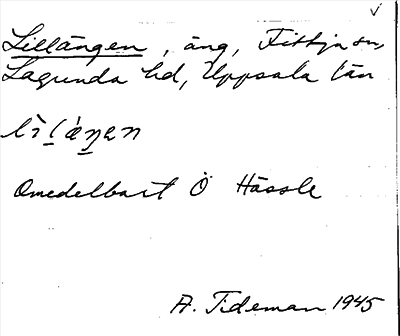 Lillängen, äng, Fittja sn,
Lagunda hd, Uppsala län
lìlǻŋen
Omedelbart Ö Hässle
A. Tideman 1945